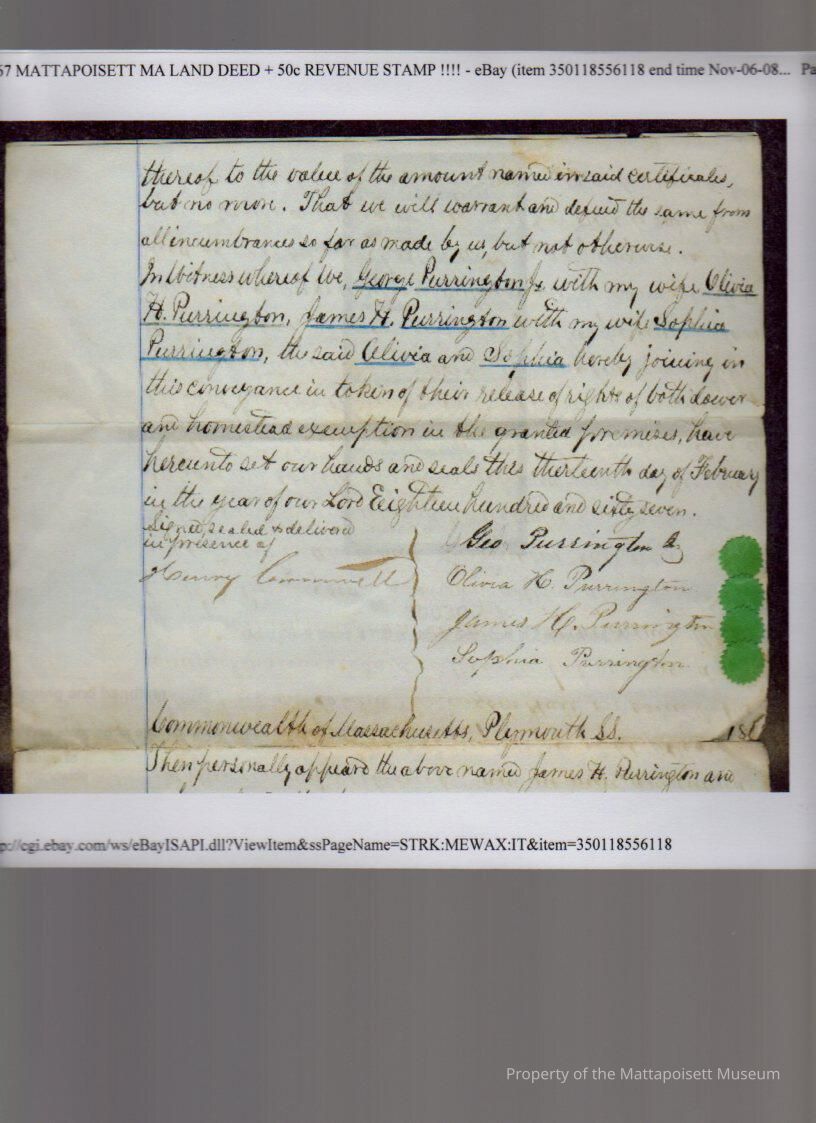 67 MATTAPOISETT MA LAND DEED + 50c REVENUE STAMP !!!! - eBay (item 350118556118 end time Nov-06-08... Pa
thereof to the value of the amount named in said certificates,
but no more. That we will warrant and defend the same from
all incumbrances so far as made by us, but not otherwise.
In Witness whereof We, George Purrington Jr. with my wife Olivia
H. Purrington, James H. Purrington with my wife Sophia
Purrington, the said Olivia and Sophia hereby joining in
this conveyance in token of their release of rights of both dower
and homestead exemption in the granted premises, have
hereunto set our hands and seals this thirteenth day of February
in the year of our Lord Eighteen hundred and sixty seven.
Signed, sealed & delivered
in presence of
Henry
Geo Purrington Jr
Olivia H. Purrington
James H. Purrington
Sophia Purrington
Commonwealth of Massachusetts, Plymouth SS. 186
Then personally appeared the above named James H. Purrington and
p://cgi.ebay.com/ws/eBayISAPI.dll?ViewItem&ssPageName=STRK:MEWAX:IT&item=350118556118
Property of the Mattapoisett Museum